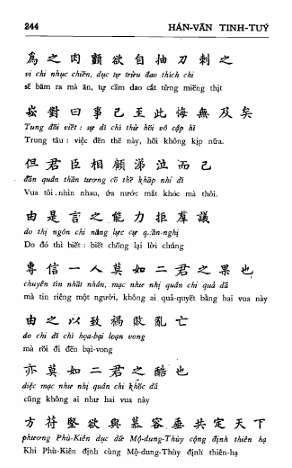 244 HÁN-VĂN TINH-TUÝ
爲之肉顫欲自抽刀刺之
vi chi nhục chiến, dục tự trừu đao thích chi
sẽ băm ra mà ăn, tự cầm dao cắt từng miếng thịt
崧對曰事已至此悔無及矣
Tung đối viết : sự dĩ chí thử hối vô cập hĩ
Trung tâu : việc đến thế này, hối không kịp nữa.
但君臣相顧涕泣而已
đãn quân thần tương cố thế khấp nhi dĩ
Vua tôi nhìn nhau, ứa nước mắt khóc mà thôi.
由是言之能力拒羣議
do thị ngôn chi năng lực cự quần-nghị
Do đó thì biết : biết chống lại lời chúng
專信一人莫如二君之果也
chuyên tín nhất nhân, mạc như nhị quân chi quả dã
mà tin riêng một người, không ai quả-quyết bằng hai vua này
由之以致禍敗亂亡
do chi dĩ chi họa-bại loạn vong
mà rồi đi đến bại-vong
亦莫如二君之酷也
diệc mạc như nhị quân chi khốc dã
cũng không ai như hai vua này
方苻堅欲與慕容垂共定天下
phương Phù-Kiên dục dữ Mộ-dung-Thùy cộng định thiên hạ
Khi Phù-Kiên định cùng Mộ-dung-Thùy định thiên-hạ